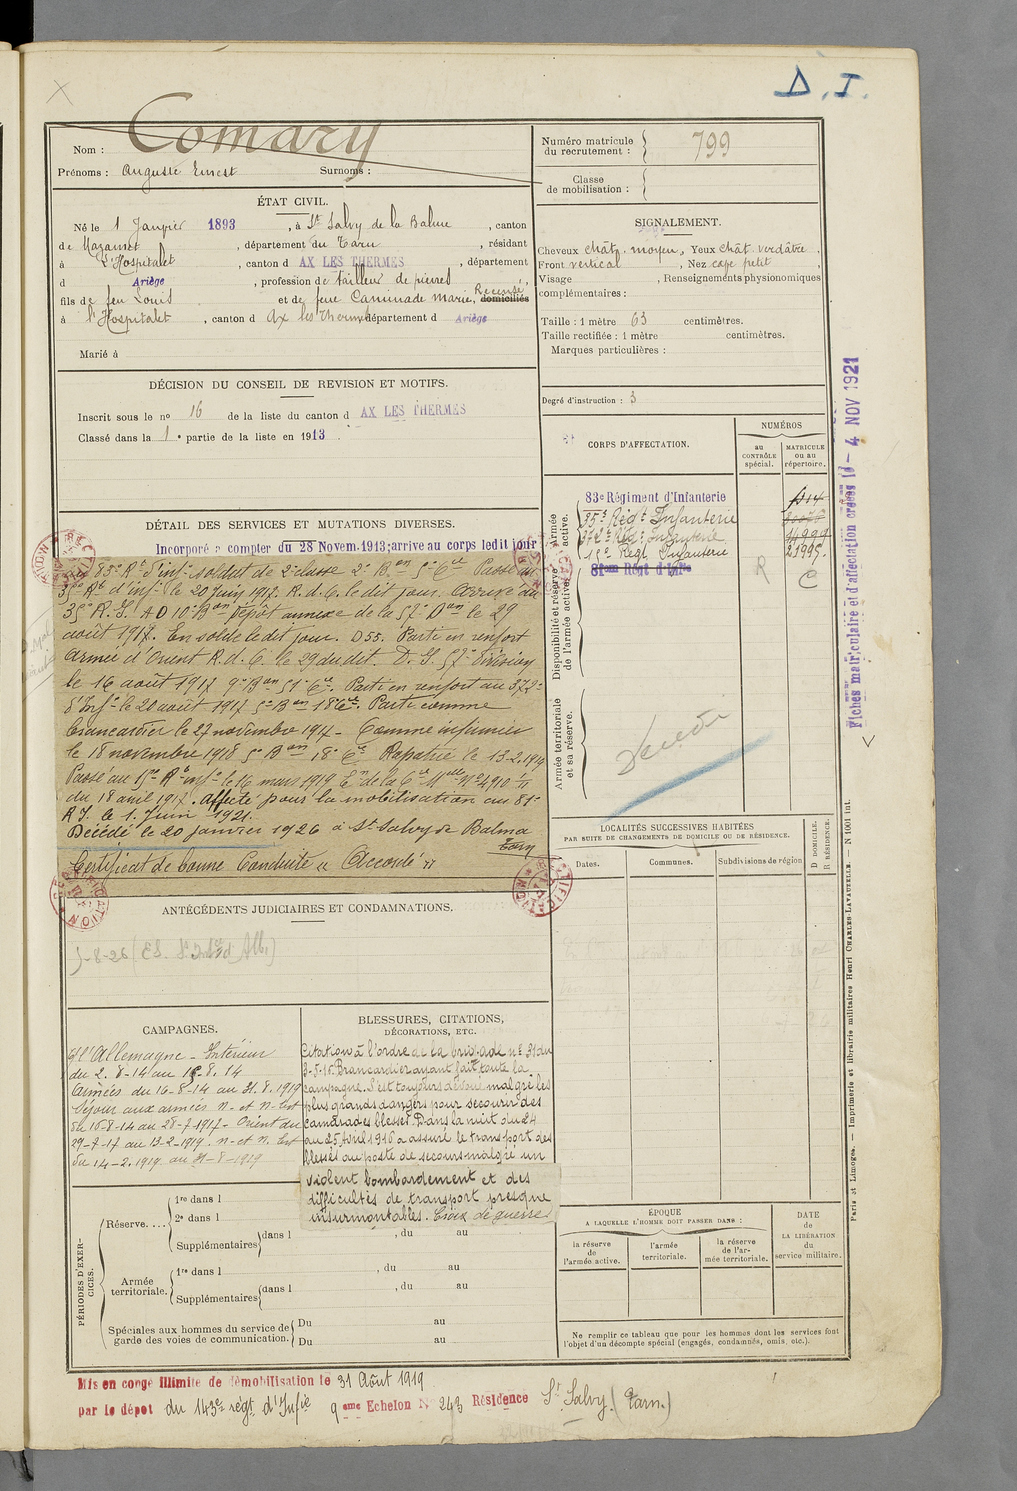 D. I.
Nom : Comary
Prénoms : Auguste Ernest Surnoms :
ÉTAT CIVIL.
Né le 1 Janvier 1893, à St Salvy de la Balme, canton
de Mazamet, département du Tarn, résidant
à L'Hospitalet, canton d AX LES THERMES, département
d Ariège, profession de tailleur de pierres,
fils de feu Louis et de feue Caminade Marie, domiciliés
à l'Hospitalet, canton d Ax les Thermes département d Ariège
Marié à
DÉCISION DU CONSEIL DE REVISION ET MOTIFS.
Inscrit sous le no 16 de la liste du canton d AX LES THERMES
Classé dans la 1e partie de la liste en 1913.
DÉTAIL DES SERVICES ET MUTATIONS DIVERSES.
Incorporé à compter du 28 Novem. 1913; arrive au corps ledit jour
83e Rt d'infie soldat de 2e classe Passé au
35e Rt d'inf. le 20 juin 1917. R. d. C. le dit jour. Arrivé au
35e R.I. AD 10e Bon Dépôt annexe de la 57e Don le 29
août 1917. En solde le dit jour. D55. Parti en renfort
Armée d'Orient R. d. C. le 29 du dit. D. I. 57e Division
le 16 août 1917 9e Bon 51e Cie. Parti en renfort au 372e
d'Infie le 21 août 1917 5e Bon 18e Cie. Parti comme
brancardier le 27 novembre 1917 - Comme infirmier
le 18 novembre 1918 5e Bon 18e Cie Rapatrié le 13-2-1919
Passé au 15e Rt infie le 16 mars 1919
du 18 avril 1917. Affecté pour la mobilisation au 81e
R.I. le 1. Juin 1921.
Décédé le 20 janvier 1926 à St Salvy de Balma
Tarn
Certificat de bonne Conduite "Accordé"
ANTÉCÉDENTS JUDICIAIRES ET CONDAMNATIONS.
CAMPAGNES.
C/ l'Allemagne - Intérieur
du 2-8-14 au 15.8.14
Armées du 16-8-14 au 31.8.1919
Séjour aux armées N. et N. Est
du 16-8-14 au 28-7-1917 - Orient du
29-7-17 au 13-2-1919. N. et N. Est
du 14-2.1919 au 31-8-1919
BLESSURES, CITATIONS,
DÉCORATIONS, ETC.
Citation à l'ordre de la brigade no 31 du
3-5-16. Brancardier ayant fait toute la
campagne. S'est toujours dévoué malgré les
plus grands dangers pour secourir des
camarades blessés. Dans la nuit du 24
au 25 Avril 1916 a assuré le transport des
blessés au poste de secours malgré un
violent bombardement et des
difficultés de transport presque
insurmontables. Croix de guerre
PÉRIODES D'EXERCICES.
Réserve....
1re dans l
2e dans l
Supplémentaires dans l , du au
Armée territoriale.
1re dans l , du au
Supplémentaires dans l , du au
Spéciales aux hommes du service de garde des voies de communication.
Du au
Du au
Mis en congé illimité de démobilisation le 31 Août 1919
par le dépôt du 143e régt d'Infie 9eme Echelon No 243 Résidence St Salvy. (Tarn.)
Numéro matricule
du recrutement : 799
Classe
de mobilisation :
SIGNALEMENT.
Cheveux chât. moyen, Yeux chât. verdâtre,
Front vertical, Nez
Visage , Renseignements physionomiques
complémentaires :
Taille : 1 mètre 63 centimètres.
Taille rectifiée : 1 mètre centimètres.
Marques particulières :
Degré d'instruction : 3
CORPS D'AFFECTATION.
NUMÉROS
au CONTRÔLE spécial.
MATRICULE ou au répertoire.
Armée active.
83e Régiment d'Infanterie
35e Régt Infanterie
372e Régt Infanterie
15e Régt Infanterie
81ème Régt d'Infie
R
C
Disponibilité et réserve de l'armée active.
Armée territoriale et sa réserve.
LOCALITÉS SUCCESSIVES HABITÉES
PAR SUITE DE CHANGEMENTS DE DOMICILE OU DE RÉSIDENCE.
Dates. Communes. Subdivisions de région
D DOMICILE.
R RÉSIDENCE.
ÉPOQUE
A LAQUELLE L'HOMME DOIT PASSER DANS :
la réserve de l'armée active.
l'armée territoriale.
la réserve de l'armée territoriale.
DATE de LA LIBÉRATION du service militaire.
Ne remplir ce tableau que pour les hommes dont les services font
l'objet d'un décompte spécial (engagés, condamnés, omis, etc.).
Fiches matriculaire et d'affectation créées le - 4 NOV 1921
Paris et Limoges. — Imprimerie et librairie militaires Henri CHARLES-LAVAUZELLE. — N 1001 int.